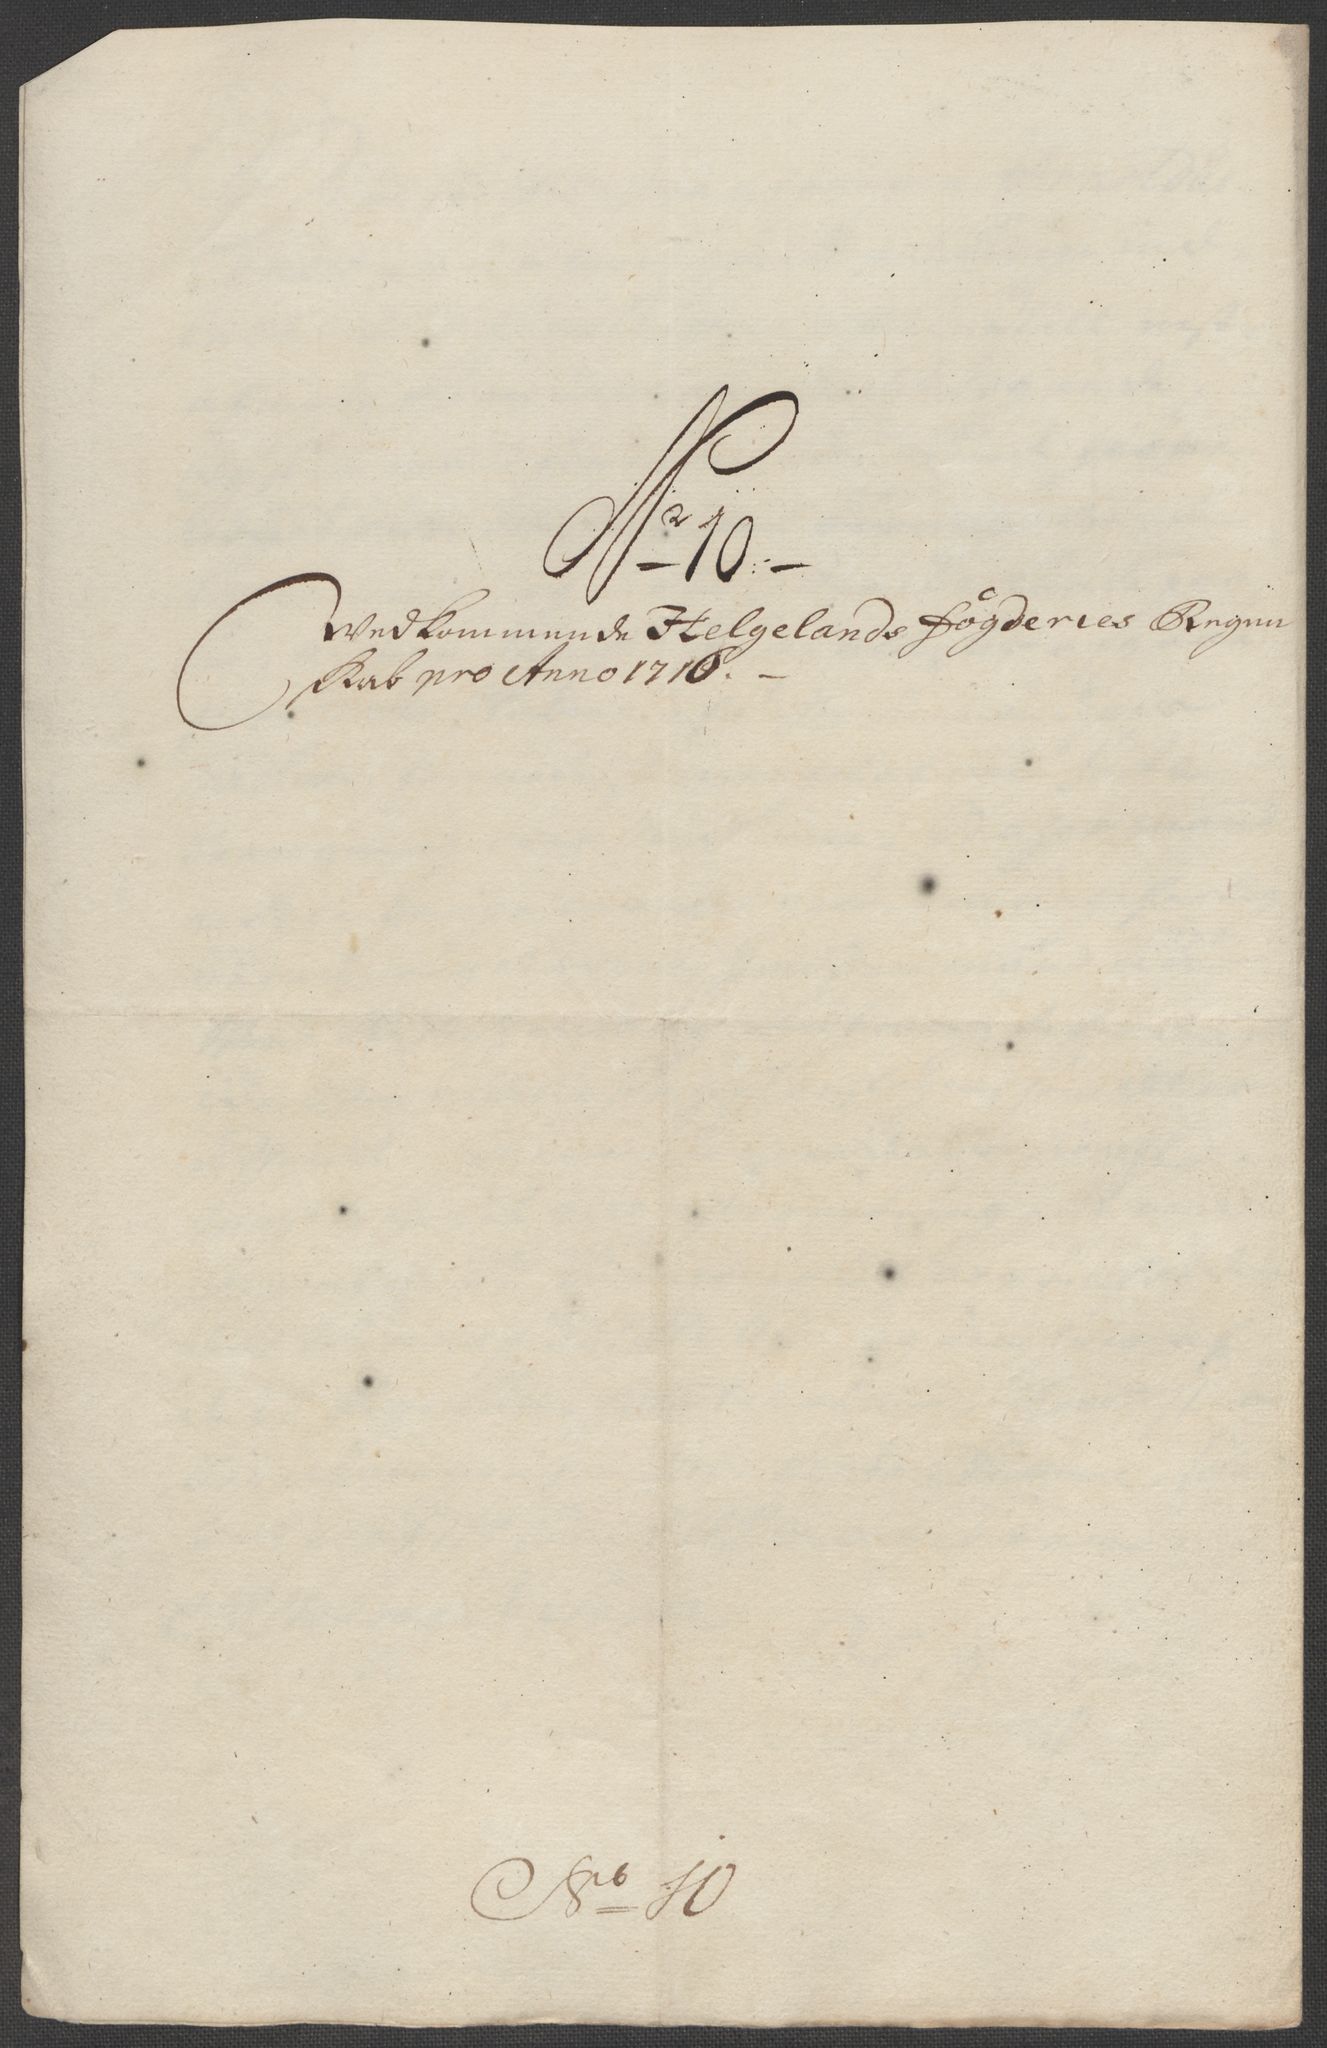 No 10.
Wedkommende Helgelands fögderies Regen
Skab pro Anno 1716.
No 10